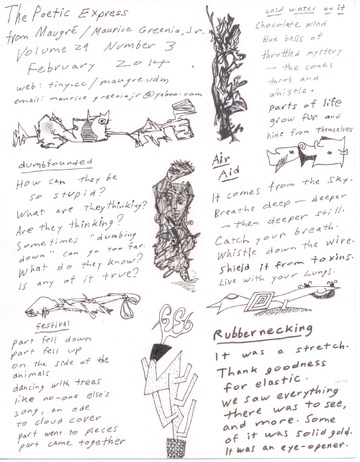 The Poetic Express
from Maugré / Maurice Greenia, Jr.
Volume 29 Number 3
February 2014
web: tiny.cc/maugreudm
email: maurice.greeniajr@yahoo.com
cold water on it
Chocolate wind
blue bells of
throttled mystery
— the cones
throb and
whistle.
parts of life
grow fur and
hide from themselves
dumbfounded
How can they be
so stupid?
What are they thinking?
Are they thinking?
Sometimes "dumbing
down" can go too far.
What do they know?
Is any of it true?
Air
Aid
It comes from the sky.
Breathe deep — deeper
— then deeper still.
Catch your breath.
Whistle down the wire.
Shield it from toxins.
Live with your Lungs.
festival
part fell down
part fell up
on the side of the
animals
dancing with trees
like no-one else's
song, an ode
to cloud cover
part went to pieces
part came together
Rubbernecking
It was a stretch.
Thank goodness
for elastic.
We saw everything
there was to see,
and more. Some
of it was solid gold.
It was an eye-opener.